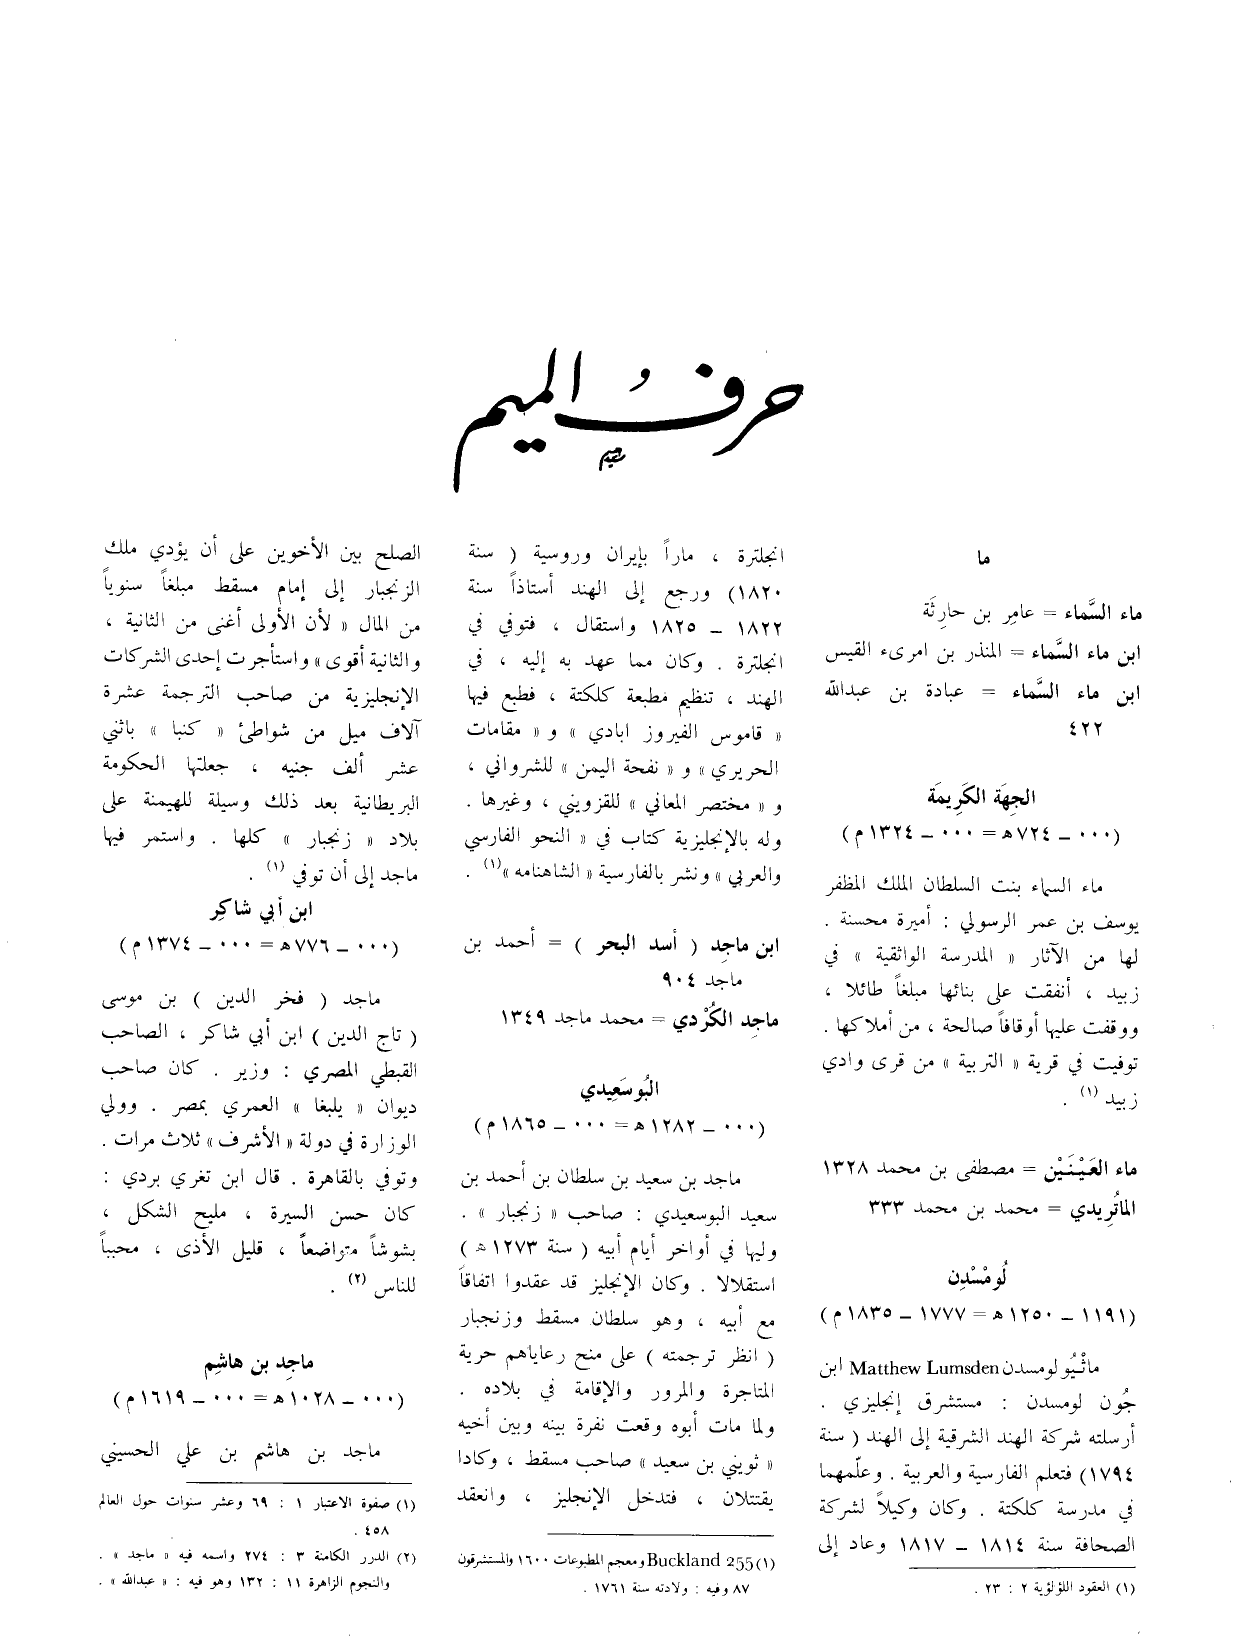 حرفُ الميم
ما
ماء السَّماء = عامِر بن حارِثَة
ابن ماء السَّماء = المنذر بن امرىء القيس
ابن ماء السَّماء = عبادة بن عبدالله
٤٢٢
الجِهَة الكَرِيمَة
(٠٠٠ – ٧٢٤ هـ = ٠٠٠ – ١٣٢٤ م)
ماء السماء بنت السلطان الملك المظفر
يوسف بن عمر الرسولي : أميرة محسنة .
لها من الآثار « المدرسة الواثقية » في
زبيد ، أنفقت على بنائها مبلغاً طائلا ،
ووقفت عليها أوقافاً صالحة ، من أملاكها .
توفيت في قرية « التربية » من قرى وادي
زبيد (١) .
ماء العَيْنَيْن = مصطفى بن محمد ١٣٢٨
الماتُريدي = محمد بن محمد ٣٣٣
لُومْسْدِن
(١١٩١ – ١٢٥٠ هـ = ١٧٧٧ – ١٨٣٥ م)
ماثْيُو لومسدن Matthew Lumsden ابن
جُون لومسدن : مستشرق إنجليزي .
أرسلته شركة الهند الشرقية إلى الهند ( سنة
١٧٩٤) فتعلم الفارسية والعربية . وعلّمهما
في مدرسة كلكتة . وكان وكيلاً لشركة
الصحافة سنة ١٨١٤ – ١٨١٧ وعاد إلى
(١) العقود اللؤلؤية ٢ : ٢٣ .
انجلترة ، ماراً بإيران وروسية ( سنة
١٨٢٠) ورجع إلى الهند أستاذاً سنة
١٨٢٢ – ١٨٢٥ واستقال ، فتوفي في
انجلترة . وكان مما عهد به إليه ، في
الهند ، تنظيم مطبعة كلكتة ، فطبع فيها
« قاموس الفيروز ابادي » و « مقامات
الحريري » و « نفحة اليمن » للشرواني ،
و « مختصر المعاني » للقزويني ، وغيرها .
وله بالإنجليزية كتاب في « النحو الفارسي
والعربي » ونشر بالفارسية « الشاهنامه »(١) .
ابن ماجِد ( أسد البحر ) = أحمد بن
ماجد ٩٠٤
ماجِد الكُرْدي = محمد ماجد ١٣٤٩
البُوسَعِيدي
(٠٠٠ – ١٢٨٢ هـ = ٠٠٠ – ١٨٦٥ م)
ماجد بن سعيد بن سلطان بن أحمد بن
سعيد البوسعيدي : صاحب « زنجبار » .
وليها في أواخر أيام أبيه ( سنة ١٢٧٣ هـ )
استقلالا . وكان الإنجليز قد عقدوا اتفاقاً
مع أبيه ، وهو سلطان مسقط وزنجبار
( انظر ترجمته ) على منح رعاياهم حرية
المتاجرة والمرور والإقامة في بلاده .
ولما مات أبوه وقعت نفرة بينه وبين أخيه
« ثويني بن سعيد » صاحب مسقط ، وكادا
يقتتلان ، فتدخل الإنجليز ، وانعقد
(١) Buckland 255 ومعجم المطبوعات ١٦٠٠ والمستشرقون
٨٧ وفيه : ولادته سنة ١٧٦١ .
الصلح بين الأخوين على أن يؤدي ملك
الزنجبار إلى إمام مسقط مبلغاً سنوياً
من المال « لأن الأولى أغنى من الثانية ،
والثانية أقوى » واستأجرت إحدى الشركات
الإنجليزية من صاحب الترجمة عشرة
آلاف ميل من شواطئ « كنبا » باثني
عشر ألف جنيه ، جعلتها الحكومة
البريطانية بعد ذلك وسيلة للهيمنة على
بلاد « زنجبار » كلها . واستمر فيها
ماجد إلى أن توفي (١) .
ابن أبي شاكِر
(٠٠٠ – ٧٧٦ هـ = ٠٠٠ – ١٣٧٤ م)
ماجد ( فخر الدين ) بن موسى
( تاج الدين ) ابن أبي شاكر ، الصاحب
القبطي المصري : وزير . كان صاحب
ديوان « يلبغا » العمري بمصر . وولي
الوزارة في دولة « الأشرف » ثلاث مرات .
وتوفي بالقاهرة . قال ابن تغري بردي :
كان حسن السيرة ، مليح الشكل ،
بشوشاً متواضعاً ، قليل الأذى ، محبباً
للناس (٢) .
ماجِد بن هاشِم
(٠٠٠ – ١٠٢٨ هـ = ٠٠٠ – ١٦١٩ م)
ماجد بن هاشم بن علي الحسيني
(١) صفوة الاعتبار ١ : ٦٩ وعشر سنوات حول العالم
٤٥٨ .
(٢) الدرر الكامنة ٣ : ٢٧٤ واسمه فيه « ماجد » .
والنجوم الزاهرة ١١ : ١٣٢ وهو فيه : « عبدالله » .